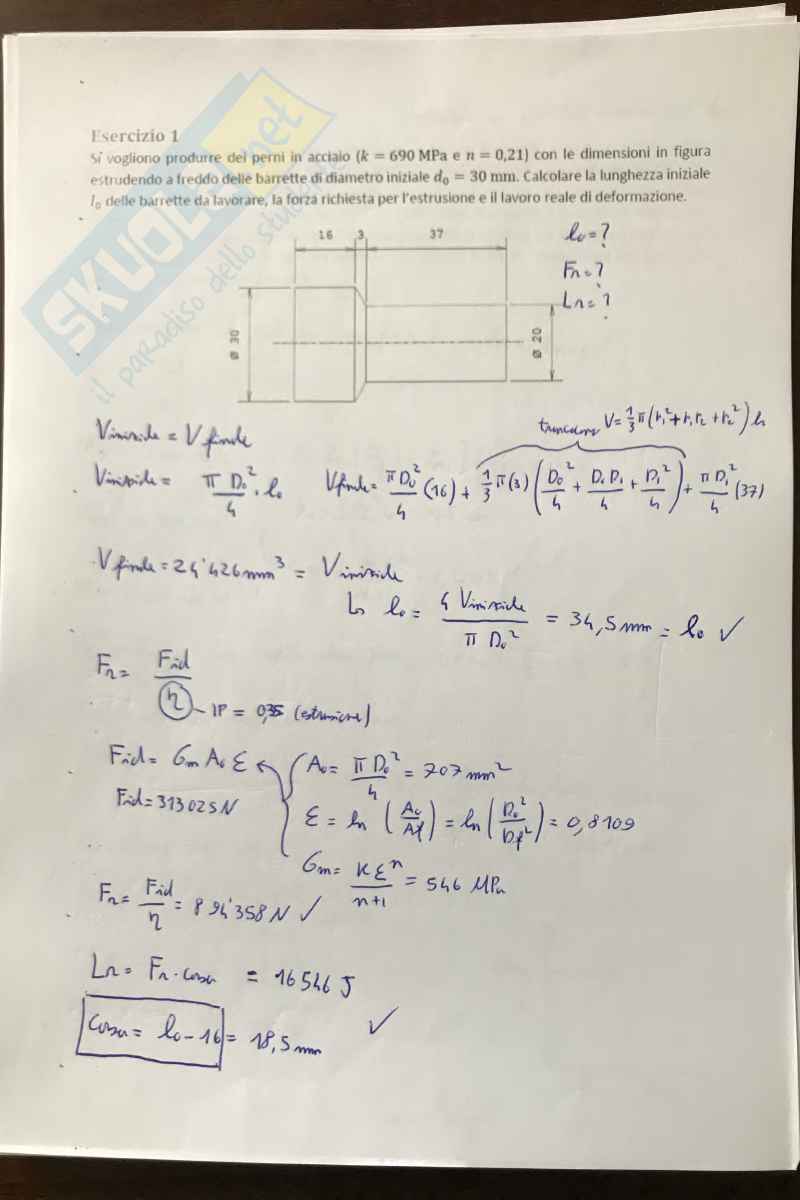 SKUOLA.net
il paradiso dello studente
Esercizio 1
Si vogliono produrre dei perni in acciaio (k = 690 MPa e n = 0,21) con le dimensioni in figura
estrudendo a freddo delle barrette di diametro iniziale d₀ = 30 mm. Calcolare la lunghezza iniziale
l₀ delle barrette da lavorare, la forza richiesta per l'estrusione e il lavoro reale di deformazione.
16 3 37
l₀ = ?
Fr = ?
Lr = ?
Ø 30
Ø 20
V iniziale = V finale
V = 1/3 π (r₁² + r₁r₂ + r₂²) h
V iniziale = π D₀²/4 · l₀ V finale = π D₀²/4 (16) + 1/3 π (3) (D₀²/4 + D₀D₁/4 + D₁²/4) + π D₁²/4 (37)
V finale = 24'426 mm³ = V iniziale
↳ l₀ = 4 V iniziale / π D₀² = 34,5 mm = l₀ ✓
Fr = Fid / η
IP = 0,35 (estrusione)
Fid = σm A₀ ε
A₀ = π D₀²/4 = 707 mm²
Fid = 313025 N
ε = ln (A₀/Af) = ln (D₀²/Df²) = 0,8109
σm = K εⁿ / n+1 = 546 MPa
Fr = Fid/η = 894'358 N ✓
Lr = Fr · corsa = 16546 J
corsa = l₀ - 16 = 18,5 mm ✓